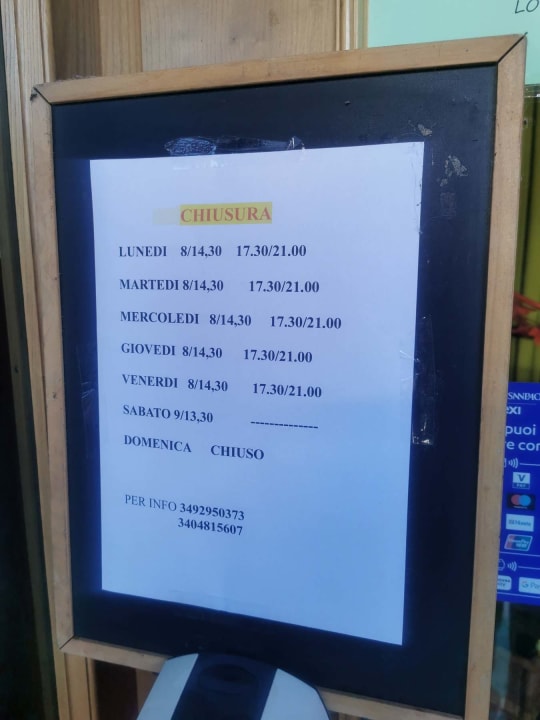 LO
CHIUSURA
LUNEDI 8/14,30 17.30/21.00
MARTEDI 8/14,30 17.30/21.00
MERCOLEDI 8/14,30 17.30/21.00
GIOVEDI 8/14,30 17.30/21.00
VENERDI 8/14,30 17.30/21.00
SABATO 9/13,30 --------------
DOMENICA CHIUSO
PER INFO 3492950373
3404815607
exi
puoi
e con
V